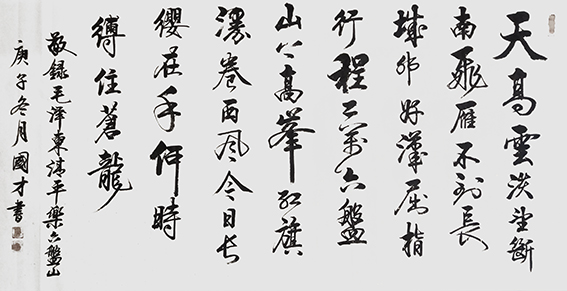 天高雲淡望斷
南飛雁不到長
城非好漢屈指
行程二萬六盤
山上高峯紅旗
漫卷西風今日長
纓在手何時
縛住蒼龍
敬録毛澤東清平樂六盤山
庚子冬月國才書